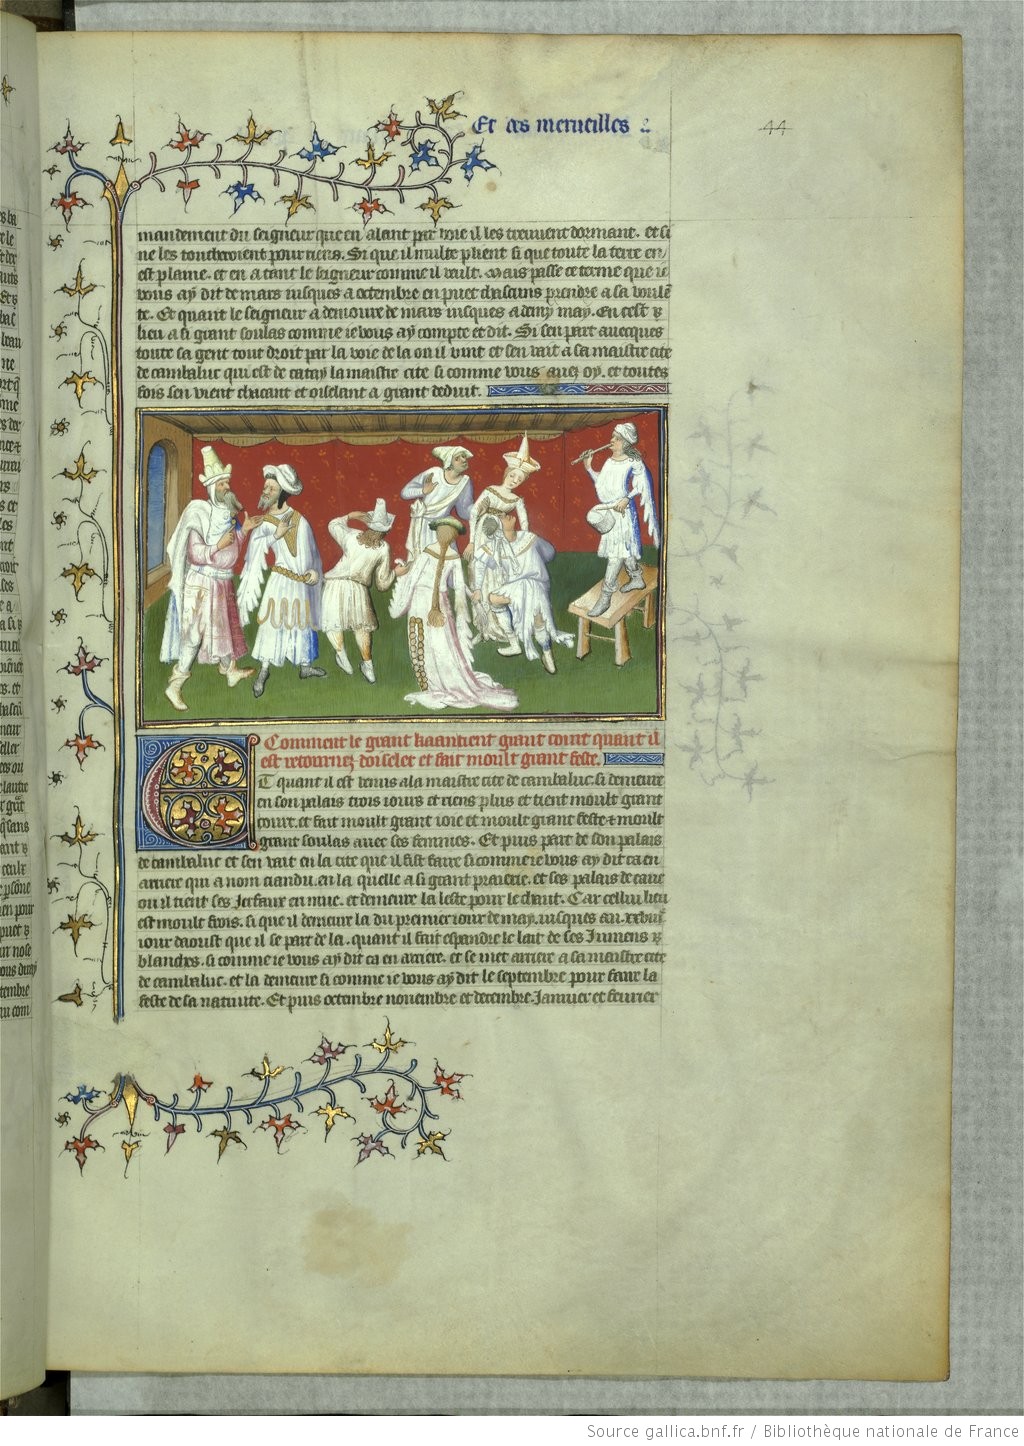 Et des merueilles
44
mandement du seigneur que en alant par voie il les treuuent dormant. et si
ne les toucheroient pour riens. Si que il multeplient si que toute la terre en
est plaine. et en a tant le seigneur comme il vault. Mais passe ce terme que ie
vous ay dit de mars iusques a octembre en puet chascuns prendre a sa voulen
te. Et quant le seigneur a demoure de mars iusques a demy may. En cest
lieu a si grant soulas comme ie vous ay compte et dit. Si sen part auecques
toute sa gent tout droit par la voie de la on il vint et sen vait a sa maistre cite
de cambaluc qui est de catay la maistre cite si comme vous auez oy. et toutes
fois sen vient chacant et oiselant a grant deduit.
Comment le grant kaan tient grant court quant il
est retournez doiseler et fait moult grant feste.
Et quant il est venus a la maistre cite de cambaluc. si demeure
en son palais trois iours et riens plus et tient moult grant
court. et fait moult grant ioie et moult grant feste et moult
grant soulas auec ses femmes. Et puis part de son palais
de cambaluc et sen vait en la cite que il fist faire si comme ie vous ay dit ca en
arriere qui a nom ciandu. en la quelle a si grant praierie. et ses palais de cane
ou il tient ses Jerfaux en mue. et demeure la leste pour le chaut. Car cellui lieu
est moult frois. si que il demeure la du premier iour de may. iusques au .xxviij.
iour daoust que il se part de la. quant il fait espandre le lait de ses Jumens
blanches. si comme ie vous ay dit ca en arriere. et se met arriere a sa maistre cite
de cambaluc. et la demeur si comme ie vous ay dit le septembre pour faire la
feste de sa natiuite. Et puis octembre nouembre et decembre. Januier et feurier
Source gallica.bnf.fr / Bibliothèque nationale de France